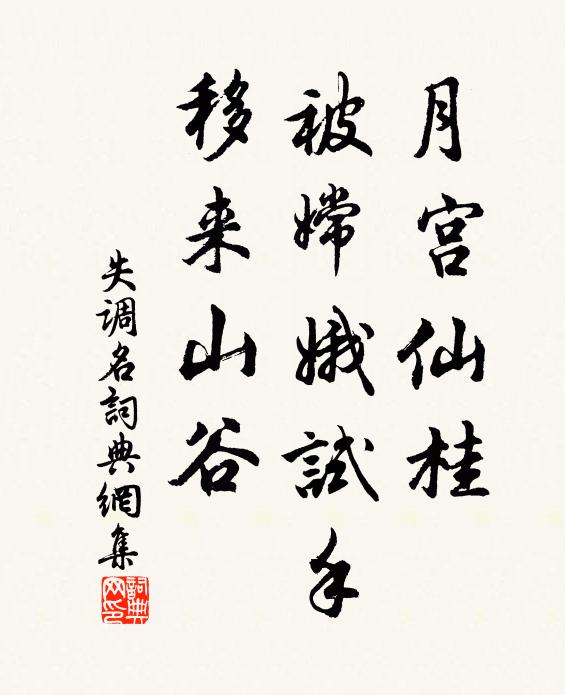 月宫仙桂
被嫦娥試手
移来山谷
失调名詞典網集
詞典网印